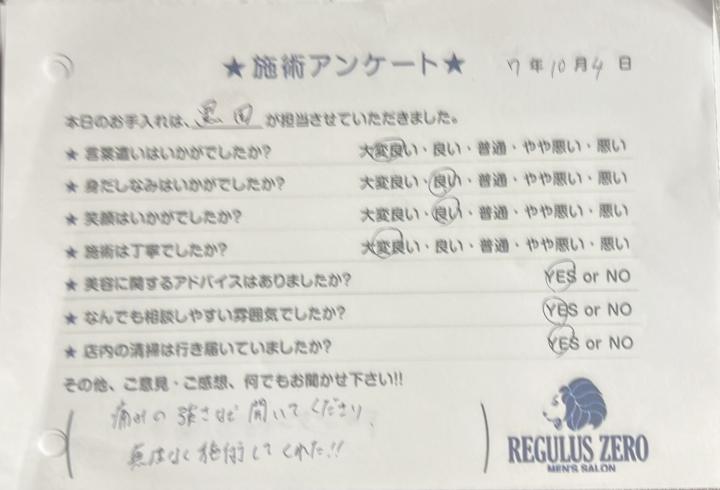 ★施術アンケート★ 7年10月4日
本日のお手入れは、黒田が担当させていただきました。
★ 言葉遣いはいかがでしたか? 大変良い・良い・普通・やや悪い・悪い
★ 身だしなみはいかがでしたか? 大変良い・良い・普通・やや悪い・悪い
★ 笑顔はいかがでしたか? 大変良い・良い・普通・やや悪い・悪い
★ 施術は丁寧でしたか? 大変良い・良い・普通・やや悪い・悪い
★ 美容に関するアドバイスはありましたか? YES or NO
★ なんでも相談しやすい雰囲気でしたか? YES or NO
★ 店内の清掃は行き届いていましたか? YES or NO
その他、ご意見・ご感想、何でもお聞かせ下さい!!
痛みの強さなど聞いてくださり、
無理なく施術してくれた!!
REGULUS ZERO
MEN'S SALON